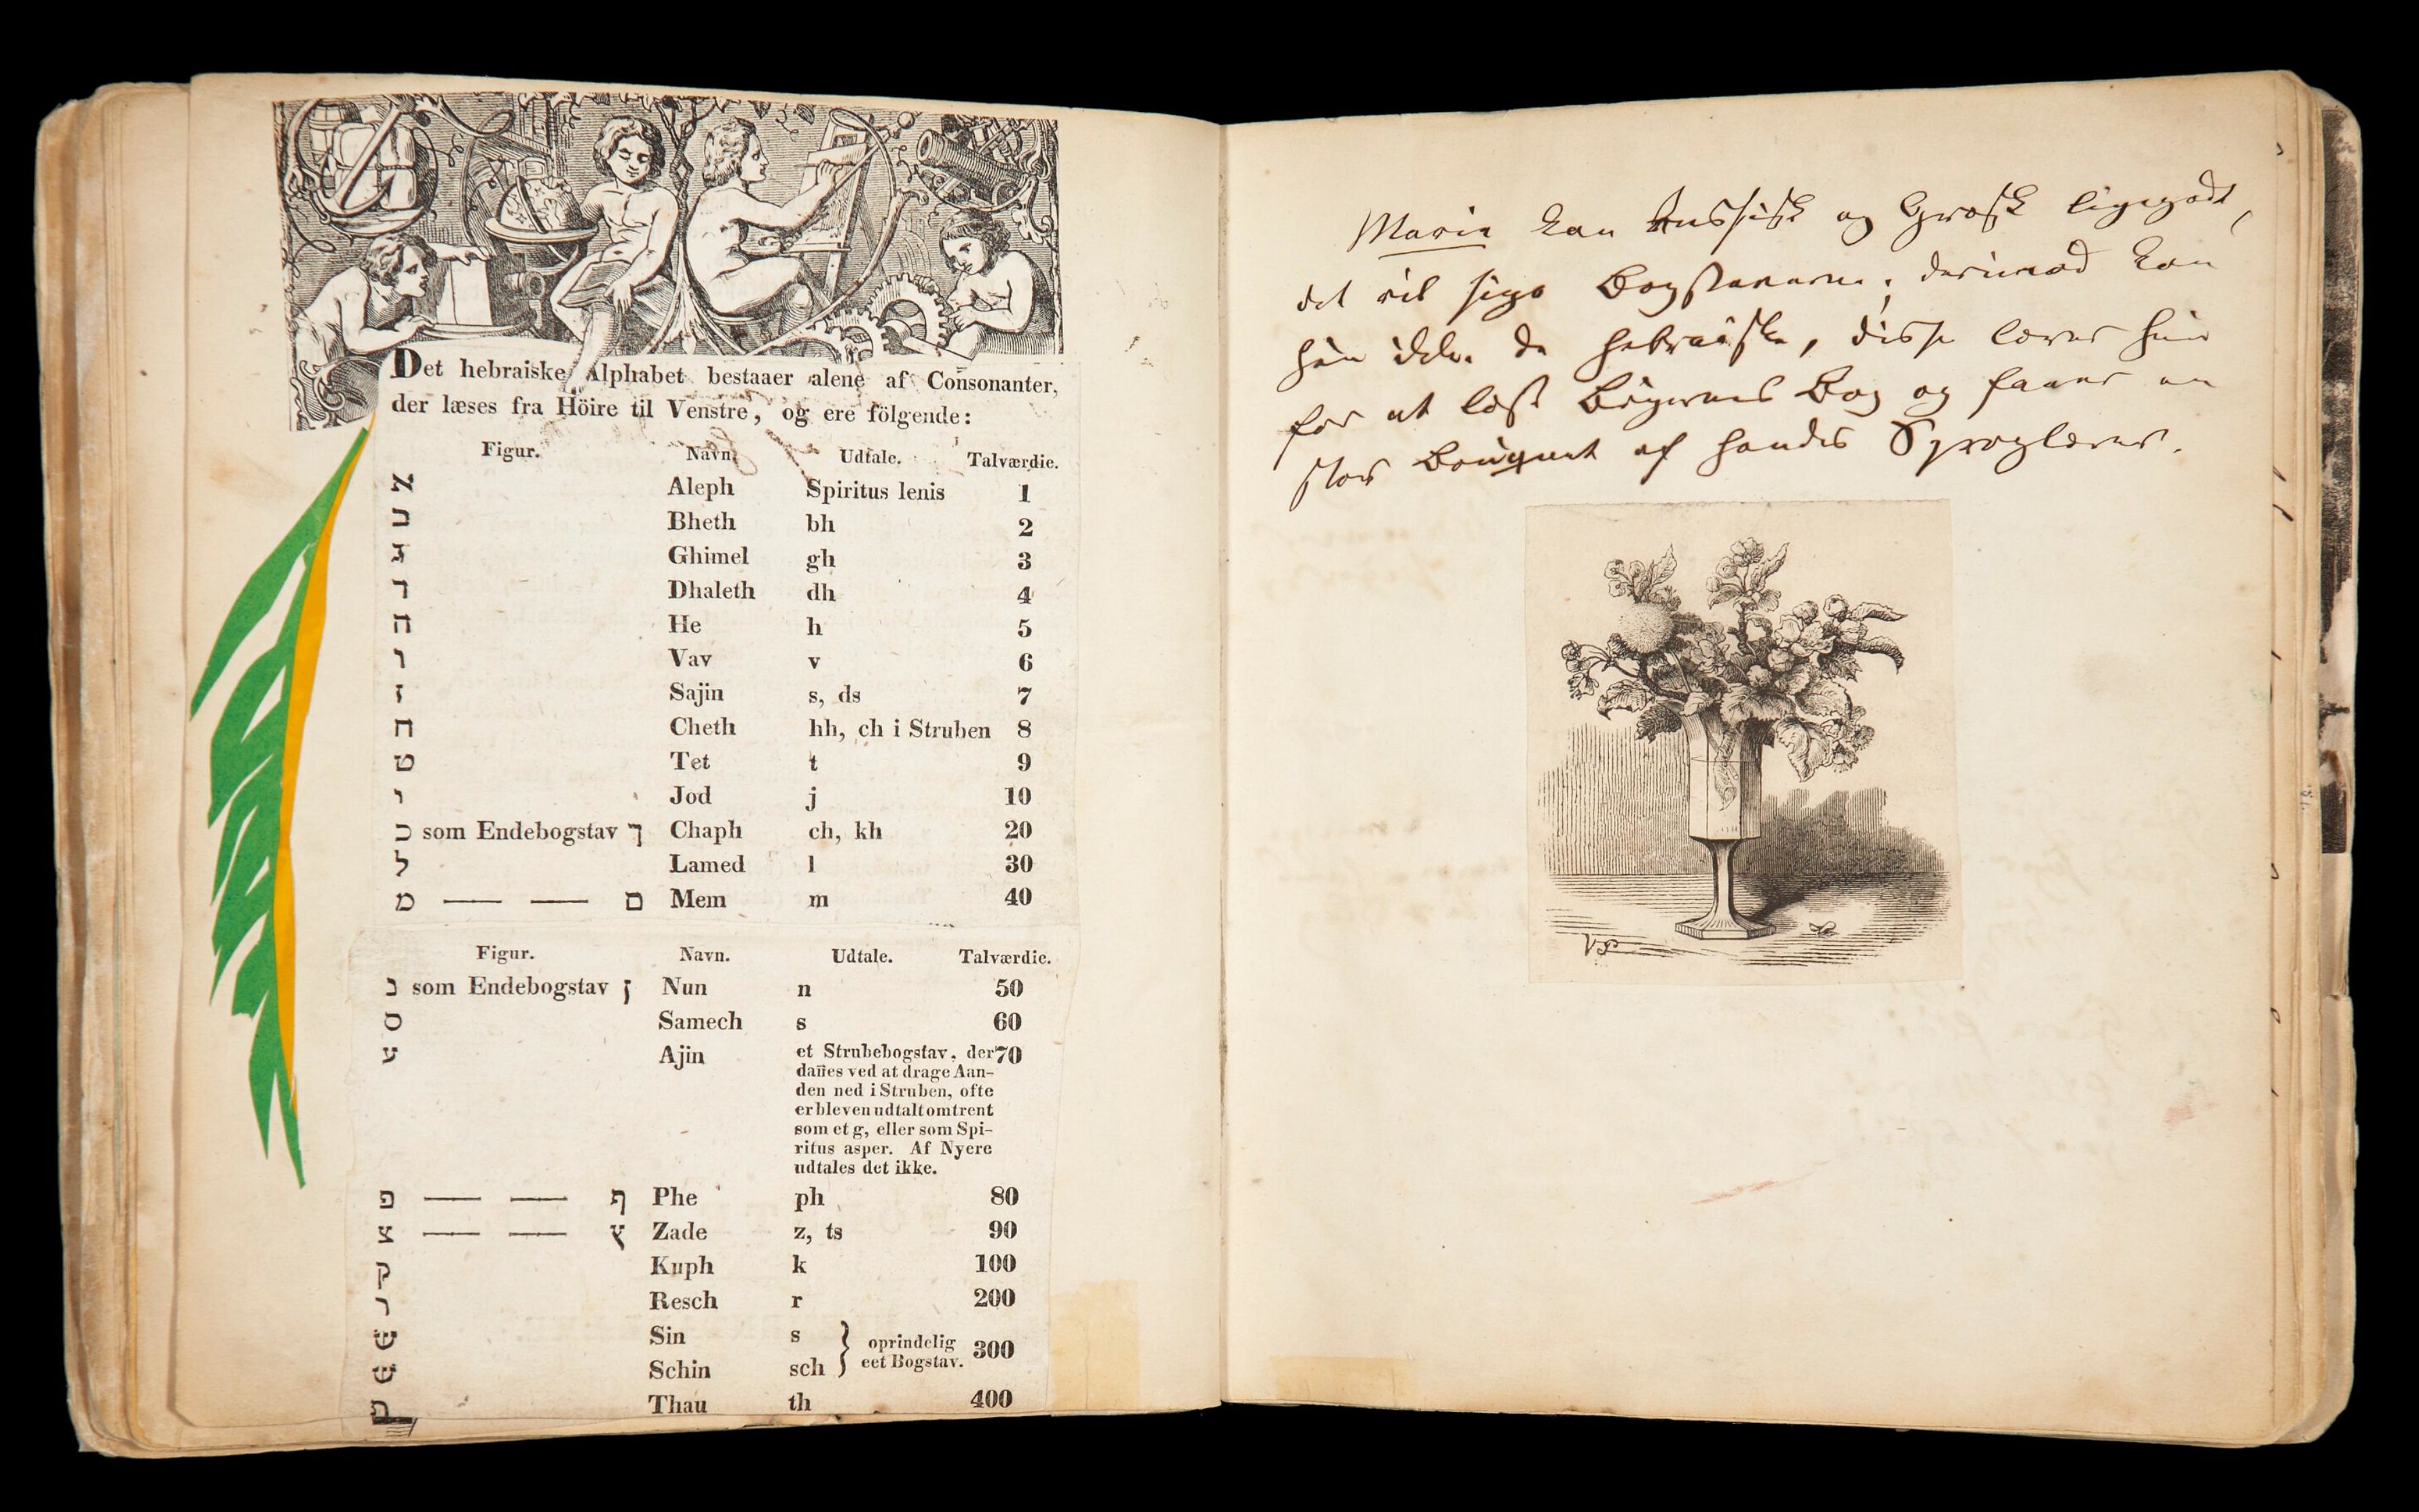 Det hebraiske Alphabet bestaaer alene af Consonanter,
der læses fra Höire til Venstre, og ere fölgende:
Figur. Navn. Udtale. Talværdie.
א Aleph Spiritus lenis 1
ב Bheth bh 2
ג Ghimel gh 3
ד Dhaleth dh 4
ה He h 5
ו Vav v 6
ז Sajin s, ds 7
ח Cheth hh, ch i Struben 8
ט Tet t 9
י Jod j 10
כ som Endebogstav ך Chaph ch, kh 20
ל Lamed l 30
מ — — ם Mem m 40
Figur. Navn. Udtale. Talværdie.
נ som Endebogstav ן Nun n 50
ס Samech s 60
ע Ajin et Strubebogstav, der 70
dañes ved at drage Aan-
den ned i Struben, ofte
er bleven udtalt omtrent
som et g, eller som Spi-
ritus asper. Af Nyere
udtales det ikke.
פ — — ף Phe ph 80
צ — — ץ Zade z, ts 90
ק Kuph k 100
ר Resch r 200
שׂ Sin s
oprindelig 300
שׁ Schin sch eet Bogstav.
ת Thau th 400
Marie kan Russisk og Græsk ligegodt,
det vil sige Bogstaverne; derimod kan
hun ikke de hebraiske, disse lærer hun
for at læse Bøgernes Bog og faaer en
stor Bouquet af hendes Sproglærer.
VP